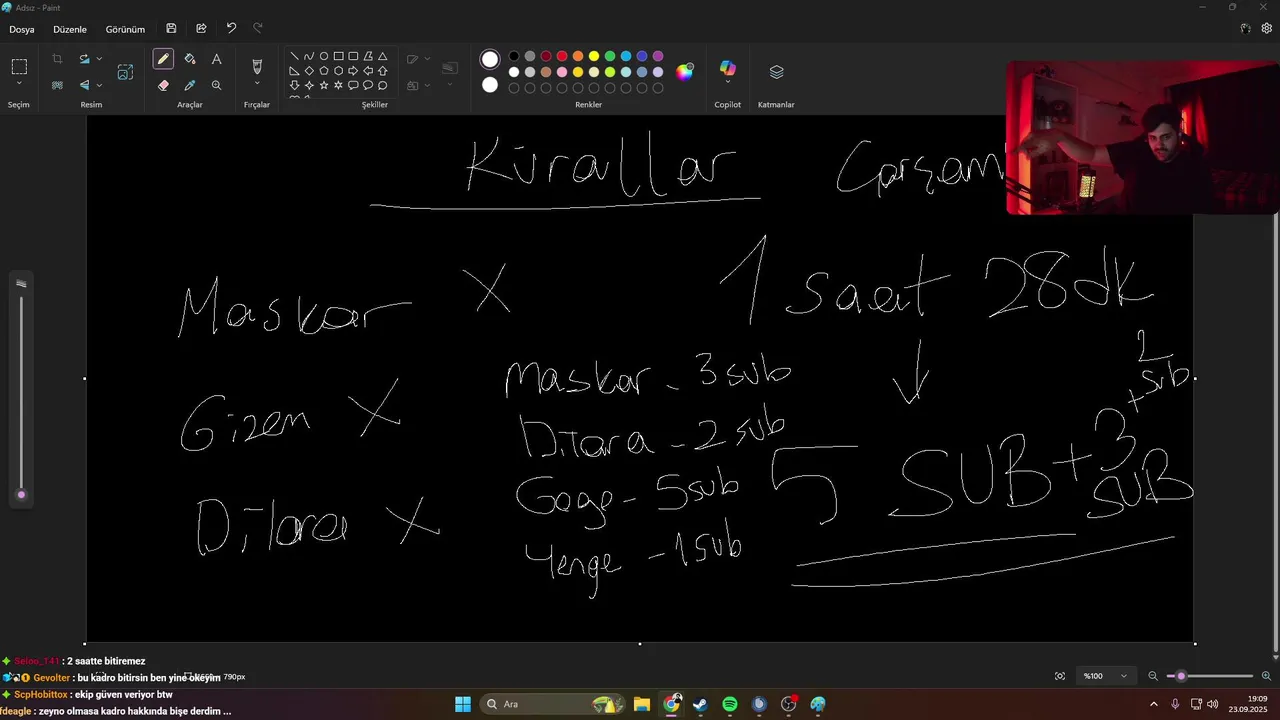 Adsız - Paint
Dosya Düzenle Görünüm
Seçim Resim Araçlar Fırçalar Şekiller Renkler Copilot Katmanlar
Kürallar Çarşam
Maskar X
1 saat 28dk
Gizem X
Dilara X
Maskar - 3 sub
Dilara - 2 sub
Gage - 5sub
Yenge - 1 sub
5 SUB + 3 SUB
+ sub
Seioo_T41 : 2 saatte bitiremez
Gevolter : bu kadro bitirsin ben yine okeyim
790px
%100
ScpHobittox : ekip güven veriyor btw
fdeagle : zeyno olmasa kadro hakkında bişe derdim ...
Ara
19:09
23.09.2025